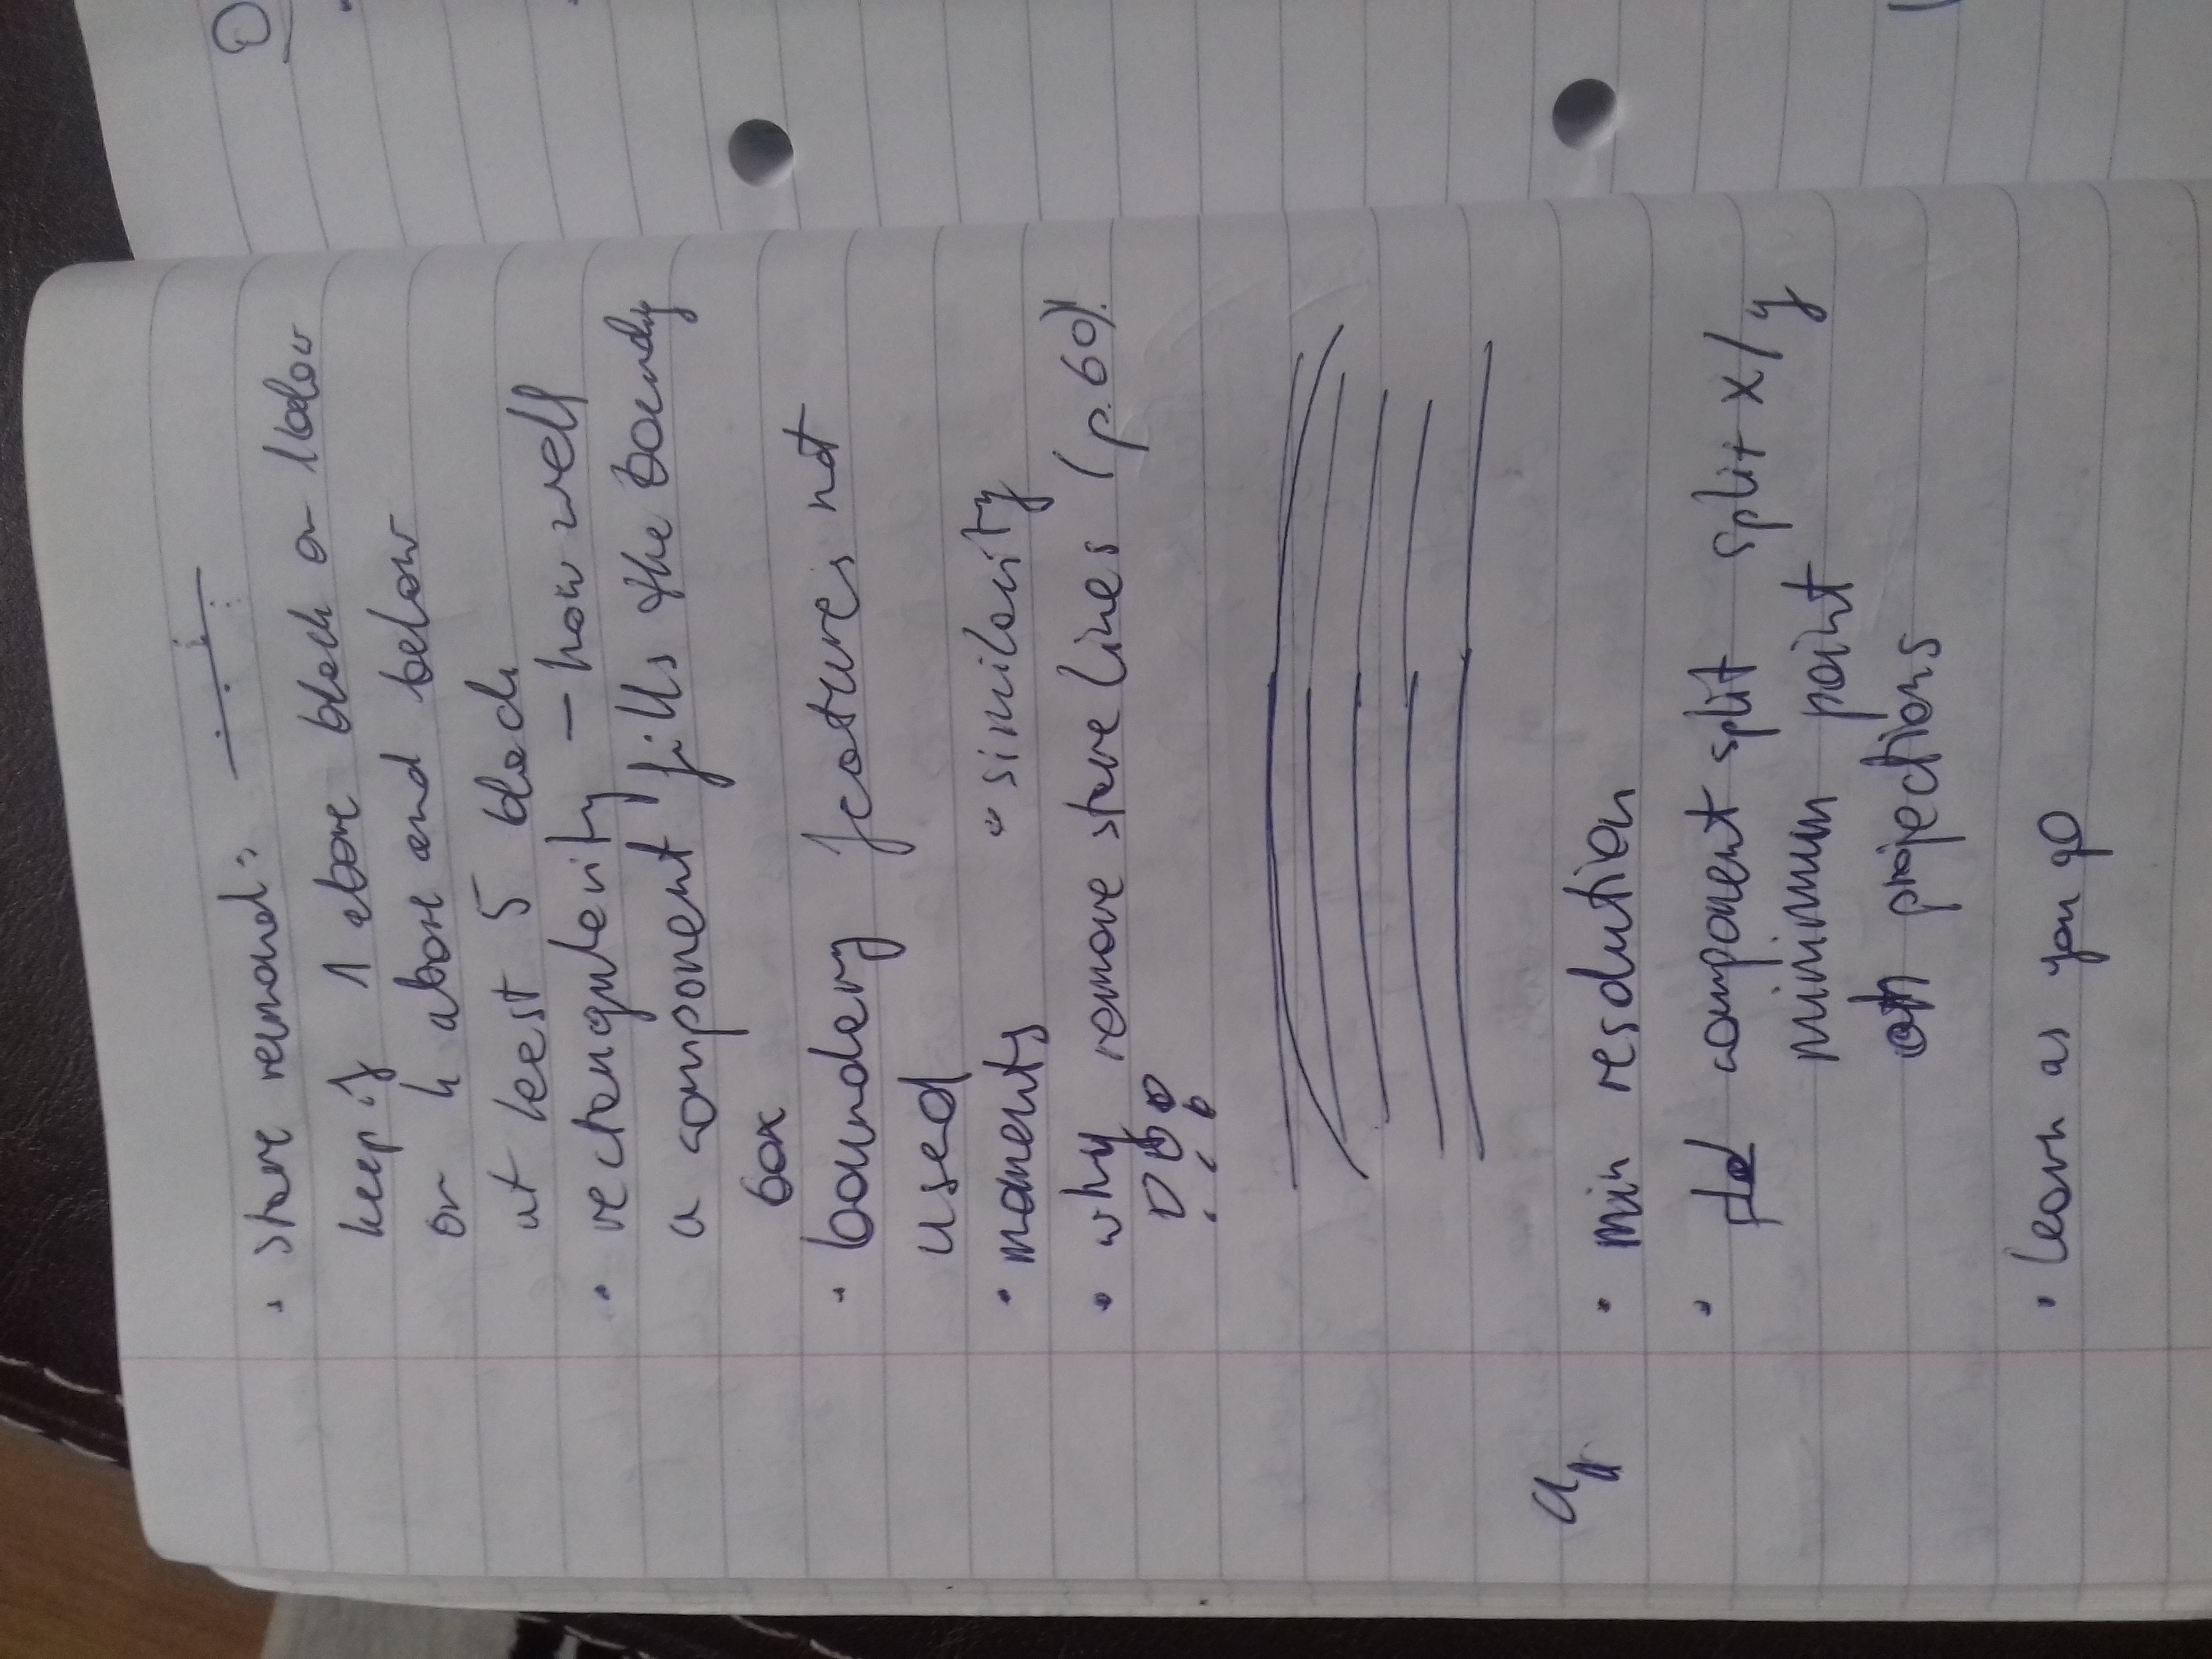 • stave removal:
keep if 1 above black or 1 below
or 4 above and below
at least 5 black
• rectangularity – how well
a component fills the boundig
box
• boundary features not
used
• moments • similarity
• why remove stave lines (p.60)!
• min resolution
• component split split x/y
minimum point
projections
• learn as you go